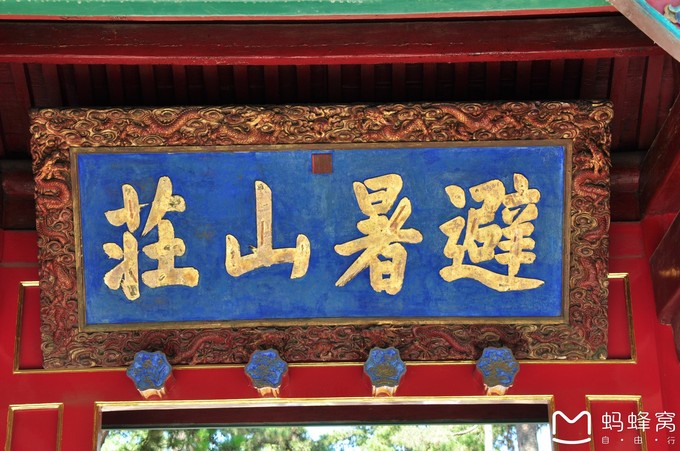 避暑山莊
蚂蜂窝
自·由·行